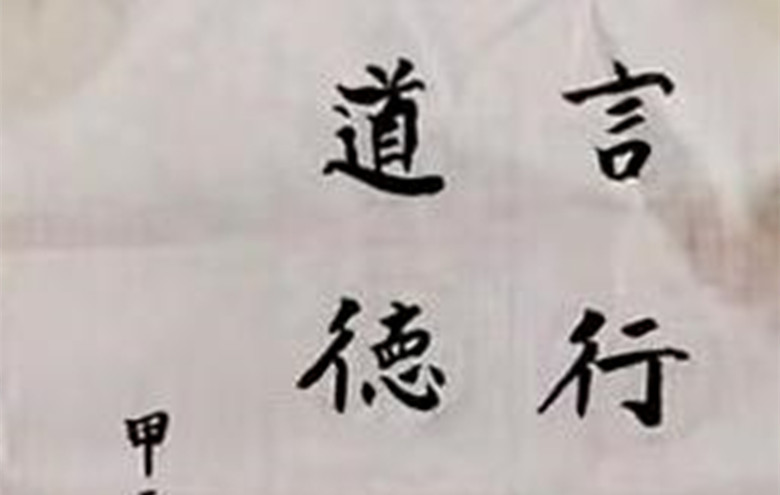 言行
道德
甲